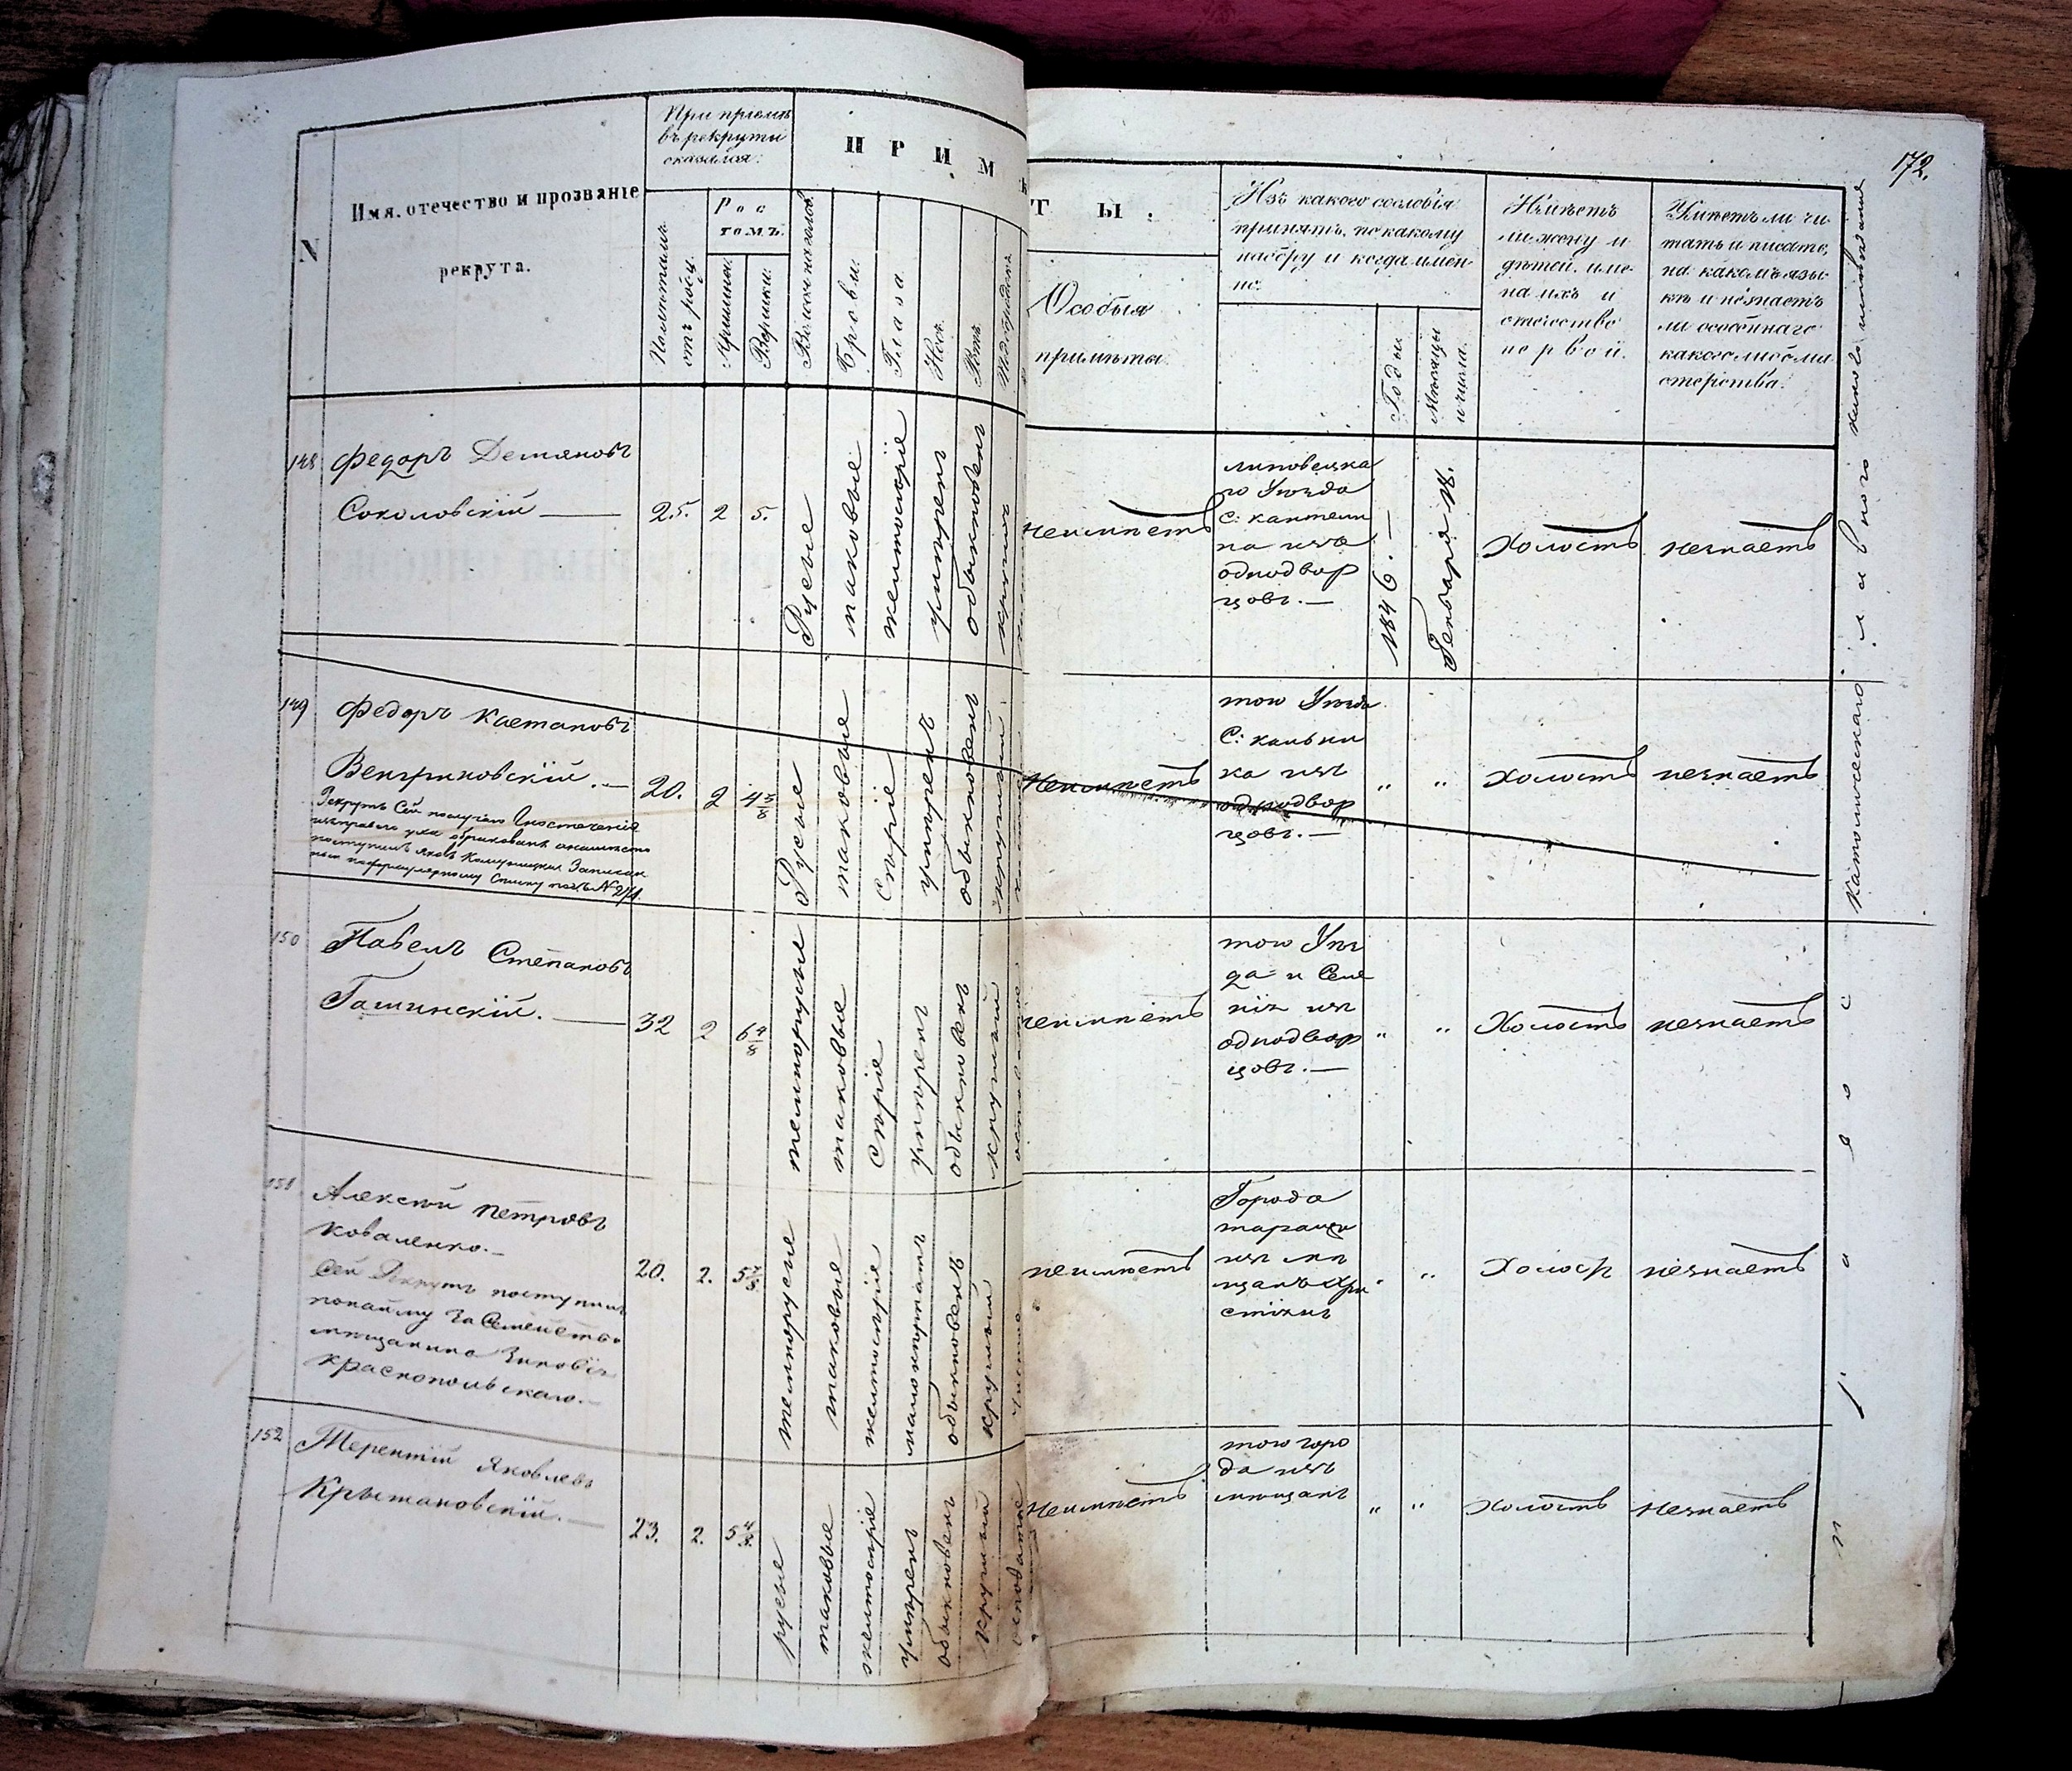 172.
N
Имя, отечество и прозваніе
рекрута.
При пріемѣ
въ рекруты
оказался:
Полнѣталъ
отъ роду.
Рос
томъ.
Аршины.
Вершки.
Волосы на головѣ
Брови.
Глаза
Носъ.
Ротъ
Подбородокъ
ПРИМ
ТЫ.
Особыя
примѣты
Изъ какого сословія
принятъ, по какому
набору и когда имен-
но.
Годы.
Мѣсяцы
и числа.
Имѣетъ
ли жену и
дѣтей, име-
на ихъ и
отчество
первой.
Умѣетъ ли чи-
тать и писать,
на какомъ язы-
кѣ и не знаетъ
ли особеннаго
какого либо ма
стерства.
148
Федоръ Демяновъ
Соколовскій
25.
2
5.
Русые
таковые
желтосѣріе
умѣрен
обыкновен
неимѣетъ
липовецка
го Уѣзда
С: кантели
на изъ
одподвор
цовъ.
1846.
Генваря 18.
Холостъ
незнаетъ
149
Федоръ Каетановъ
Венгриновскій.
Рекрутъ Сей
20.
2
4 5/8
Русые
таковые
Сѣріе
умѣренъ
обыкновенъ
Неимѣетъ
того Уѣзда
С: кальни
ка изъ
одподвор
цовъ.
"
"
холостъ
незнаетъ
150
Павелъ Степановъ
Гашинскій.
32
2
6 4/8
темнорусые
таковые
Сѣріе
умѣрен
обыкновен
круглый
неимѣетъ
того Уѣз
да и Селе
нія изъ
одподвор
цовъ.
"
"
Холостъ
незнаетъ
151
Алексѣй Петровъ
Коваленко.
Сей Рекрутъ поступилъ
понайму за Семейство
мѣщанина Зиновія
Краснопольскаго.
20.
2.
5 7/8
темнорусые
таковые
желтосѣріе
обыкновенъ
круглый
чистое
неимѣетъ
Города
таращи
изъ мѣ
щанъ хри
стіянъ
"
"
Холост
незнаетъ
152
Терентій Яковлевъ
Крыжановскій.
23.
2.
5 4/8
русые
таковые
желтосѣріе
умѣрен
обыкновен
круглый
Неимѣетъ
того горо
да изъ
мѣщанъ
"
"
Холостъ
незнаетъ
Католическаго
Православнаго